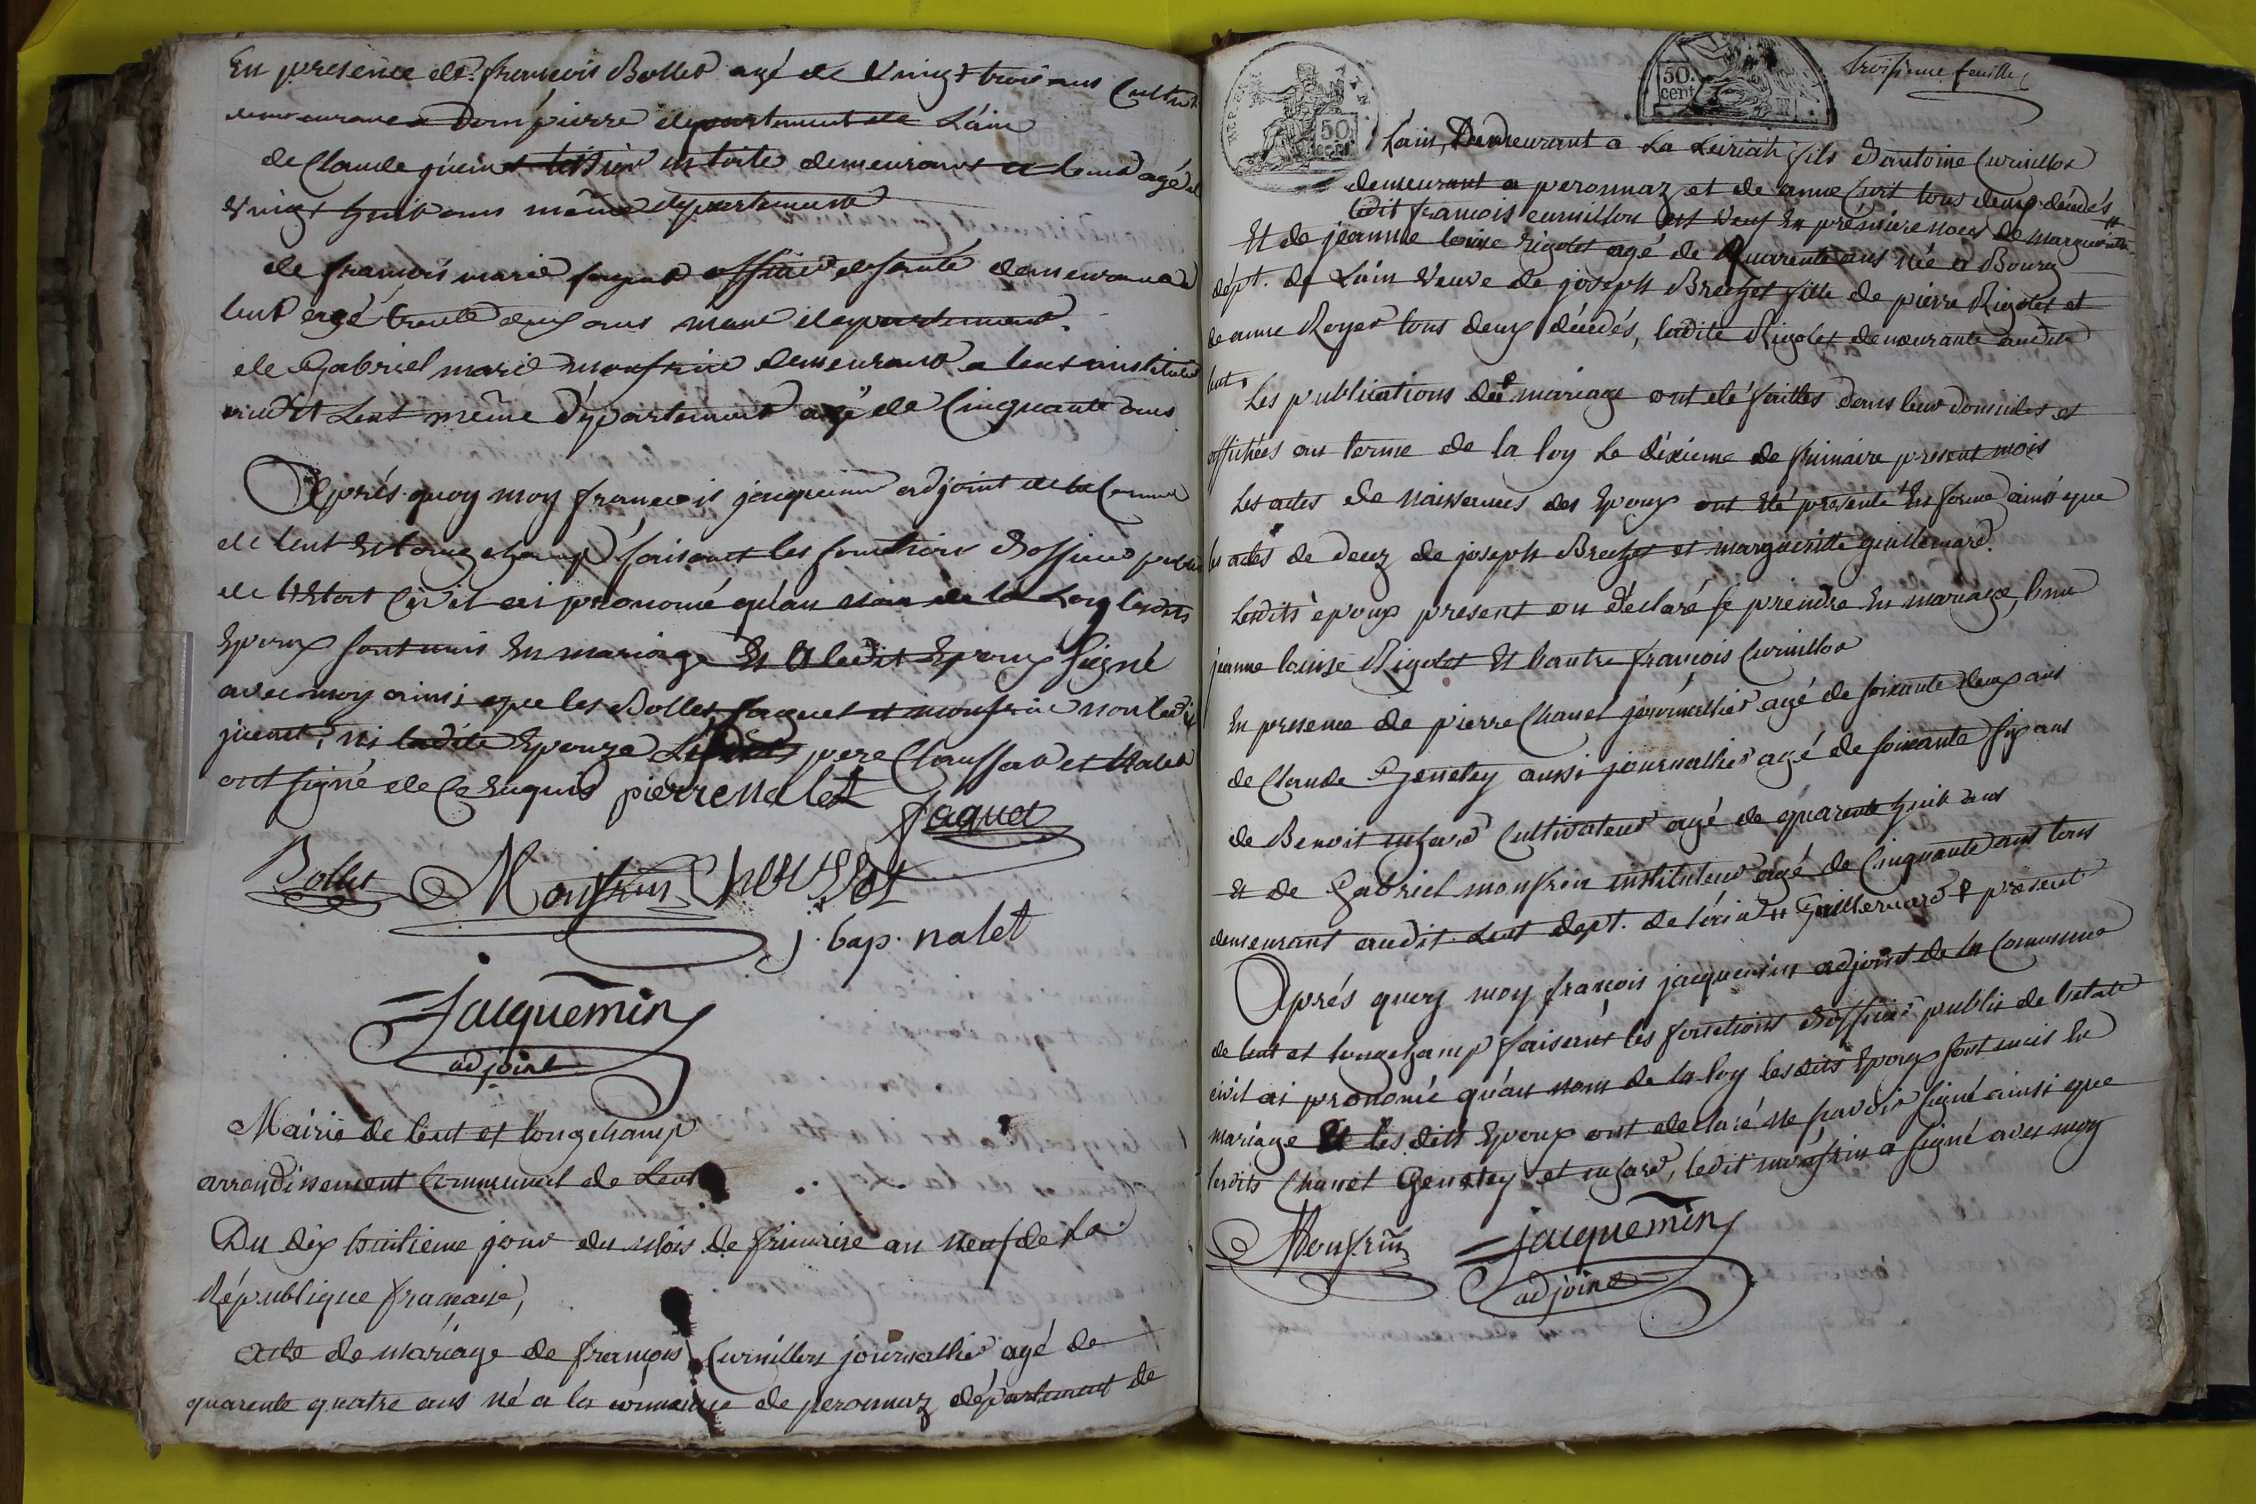 En presence de françois Bollet agé de vingt trois ans Cult
demeurant a Dompierre departement de L'ain
de Claude juenet tissier en toile demeurant a Lent agé de
vingt huit ans même departement
de françois marie faguet officier de santé demeurant a
lent agé trente deux ans meme departement.
de Gabriel marie monfrin demeurant a lent instituteur
audit Lent même département agé de Cinquante ans
Après quoy moy françois jacquemin adjoint de la Commune
de lent et longchamp faisant les fonctions d'officier public
de l'Etat Civil ai prononcé qu'au nom de la Loy lesdits
Epoux sont unis en mariage Et a ledit Epoux signé
avec moy ainsi que les Bollet faguet et monfrin non ledit
juenet, ni ladite Epouze pere Chaussat et Nalet
ont signé de Ce Enquis pierre nalet
faguet
Bollet Monfrin Chaussat
j. bap. nalet
Jacquemin
adjoint
Mairie de lent et longchamp
arrondissement Communal de Lent
Du dix huitieme jour du mois de frimaire an neuf de la
République française,
Acte de mariage de françois Curnillon journallier agé de
quarente quatre ans né a la commune de peronnaz département de
50. cent
50. cent
troisieme feuille
Lain, Demeurant a La Leiriat fils d'antoine Curnillon
demeurant a peronnaz et de anne Curt tous deux décédés
ledit francois curnillon est veuf En première noces de marguerite #
Et de jeanne louise rigolet agé de Quarente ans née a Bourg
dépt. de Lain veuve de joseph Brechet fille de pierre Rigolet et
de anne Royer tous deux décédés, ladite Rigolet demeurante audit
lent.
Les publications de mariage ont été faittes dans leur domicile et
affichées au terme de la loy le dixieme de frimaire présent mois
Les actes de naissances des Epoux ont été présenté En forme ainsi que
les actes de decez de joseph Brechet et marguerite guillemard.
Lesdits époux present on déclaré se prendre En mariage, l'une
jeanne louise Rigolet Et l'autre françois Curnillon
En presence de pierre Chanel journallier agé de soixante deux ans
de Claude Genetey aussi journallier agé de soixante six ans
de Benoit Cultivateur agé de quarente huit ans
Et de Gabriel monfrin instituteur agé de Cinquante ans tous
demeurant audit Lent dept. de l'ain # Guillemard present
Après quoy moy françois jacquemin adjoint de la Commune
de lent et longchamp faisant les fonctions d'officier public de l'etat
civil ai prononcé qu'au nom de la loy lesdits Epoux sont unis En
mariage Et lesdits Epoux ont déclaré ne savoir signé ainsi que
lesdits Chanel Genetey et, ledit monfrin a signé avec moy
Monfrin Jacquemin
adjoint